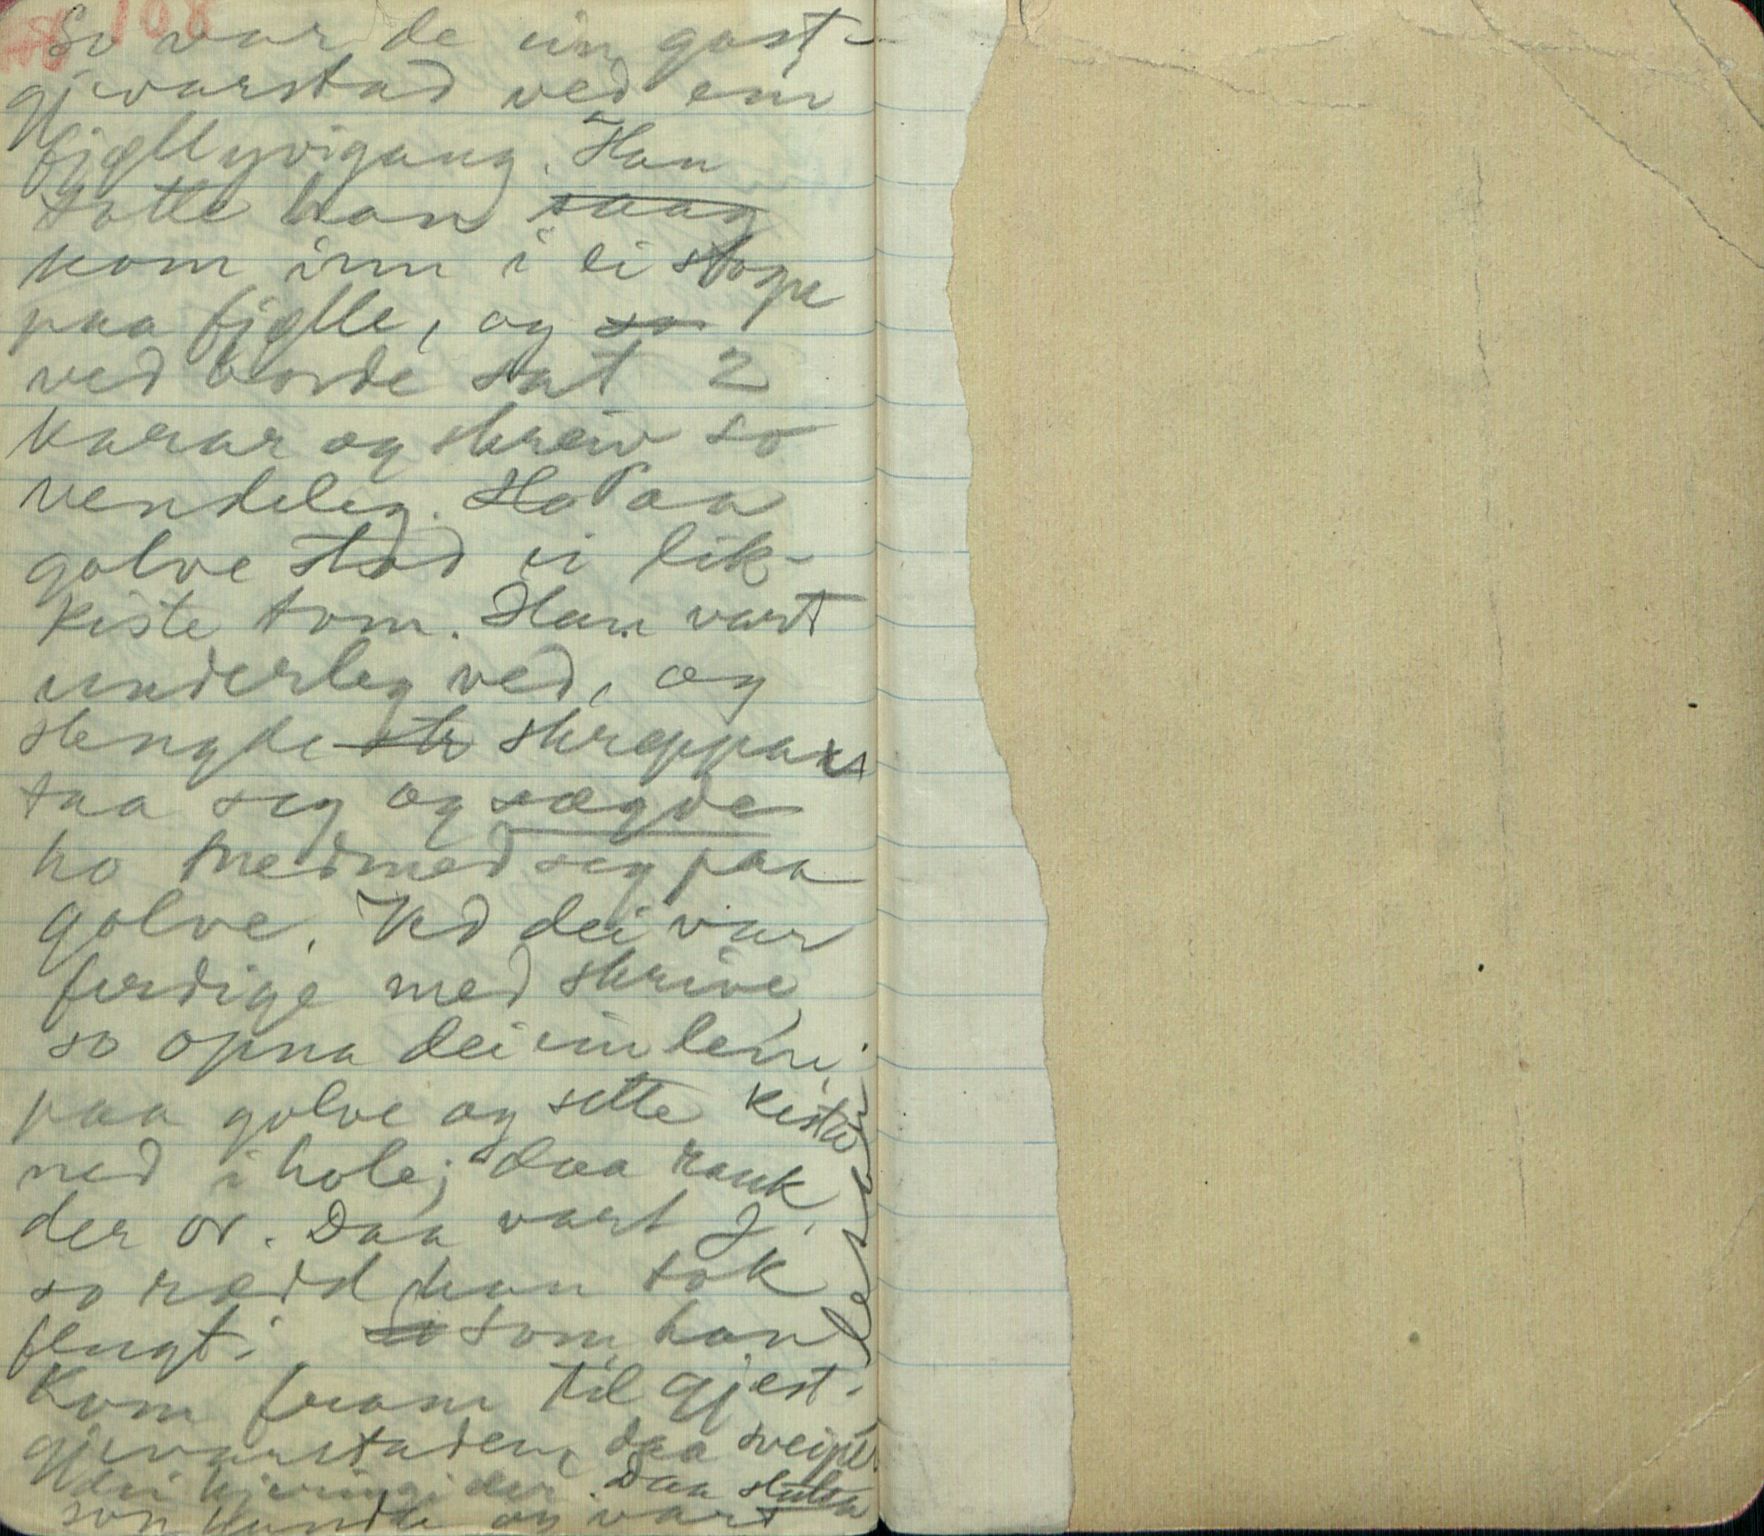 108
So var de ein gast-
gjevarstad ved ein
fjellyvigang. Han
totte han saag
kom inn i ei stope
paa fjelle, og so
ved borde sat 2
karar og skreiv so
vendeleg. Ho Paa
golve stod ei lik-
kiste tom. Han vart
underleg ved, og
slengde sk skreppa
taa seg og sægde
ho med seg paa
golve. Ved dei var
ferdige med skrive
so opna dei ein lem
paa golve og sette kista
ned i hole; daa rauk
der or. Daa vart J.
so rædd han tok
flugt. so Som han
kom fram til gjest-
gjevarstaden, daa
dei kjering der. Daa
son kunde og vart